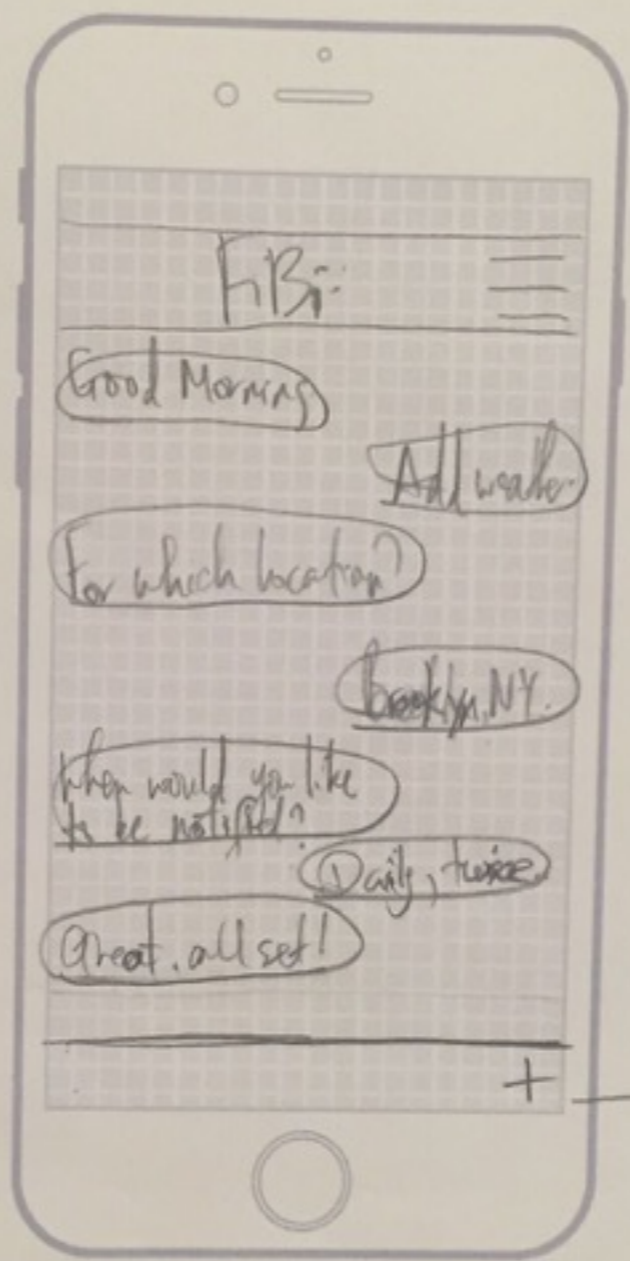 FiBi
Good Morning
Add weather
For which location?
Brooklyn, NY.
When would you like
to be notified?
Daily, twice
Great, all set!
+